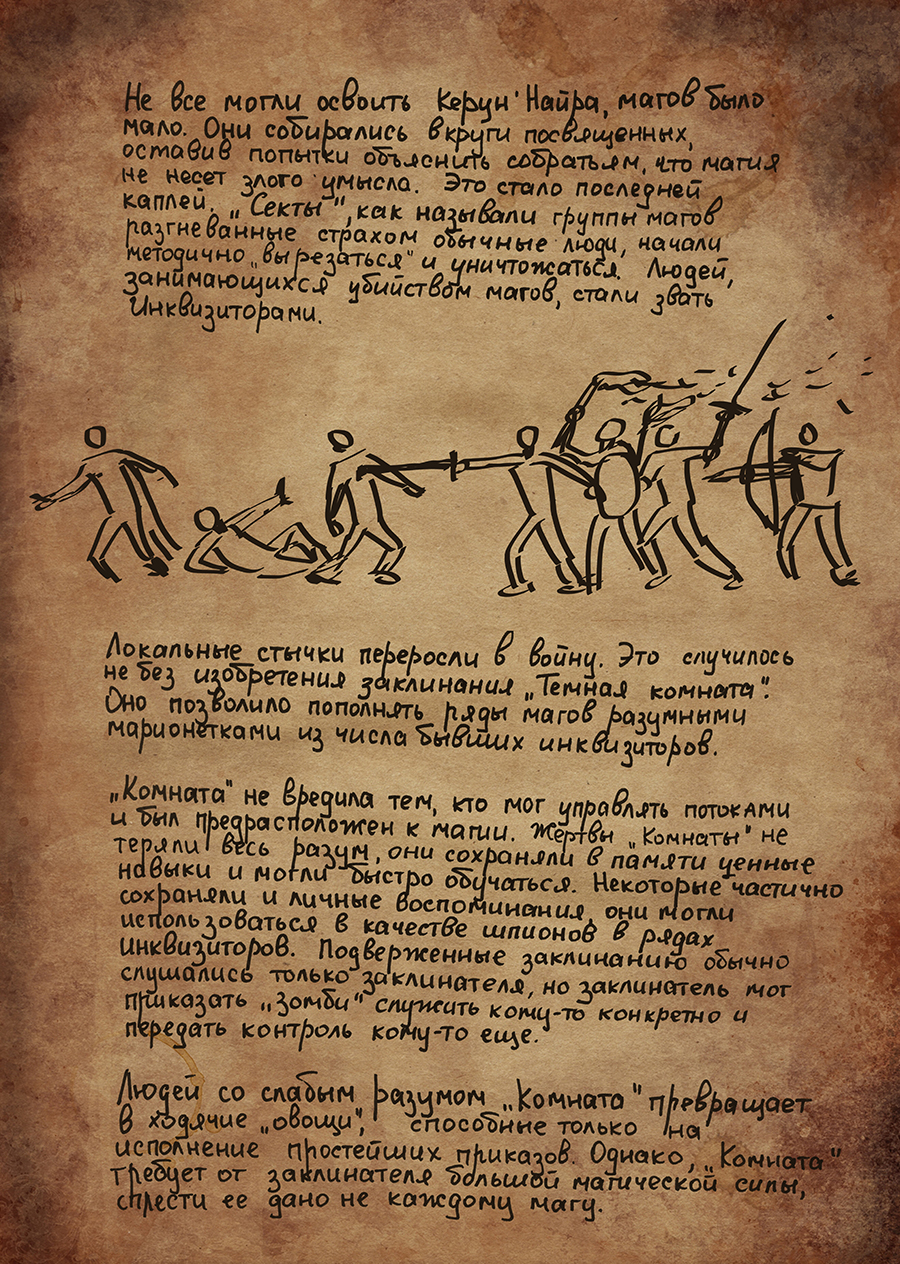 Не все могли освоить Керун'Найра, магов было
мало. Они собирались в круги посвященных,
оставив попытки объяснить собратьям, что магия
не несет злого умысла. Это стало последней
каплей. „Секты", как называли группы магов
разгневанные страхом обычные люди, начали
методично „вырезаться" и уничтожаться. Людей,
занимающихся убийством магов, стали звать
Инквизиторами.
Локальные стычки переросли в войну. Это случилось
не без изобретения заклинания „Темная комната".
Оно позволило пополнять ряды магов разумными
марионетками из числа бывших инквизиторов.
„Комната" не вредила тем, кто мог управлять потоками
и был предрасположен к магии. Жертвы „Комнаты" не
теряли весь разум, они сохраняли в памяти ценные
навыки и могли быстро обучаться. Некоторые частично
сохраняли и личные воспоминания, они могли
использоваться в качестве шпионов в рядах
инквизиторов. Подверженные заклинанию обычно
слушались только заклинателя, но заклинатель мог
приказать „зомби" служить кому-то конкретно и
передать контроль кому-то еще.
Людей со слабым разумом „Комната" превращает
в ходячие „овощи", способные только на
исполнение простейших приказов. Однако, „Комната"
требует от заклинателя большой магической силы,
сплести ее дано не каждому магу.